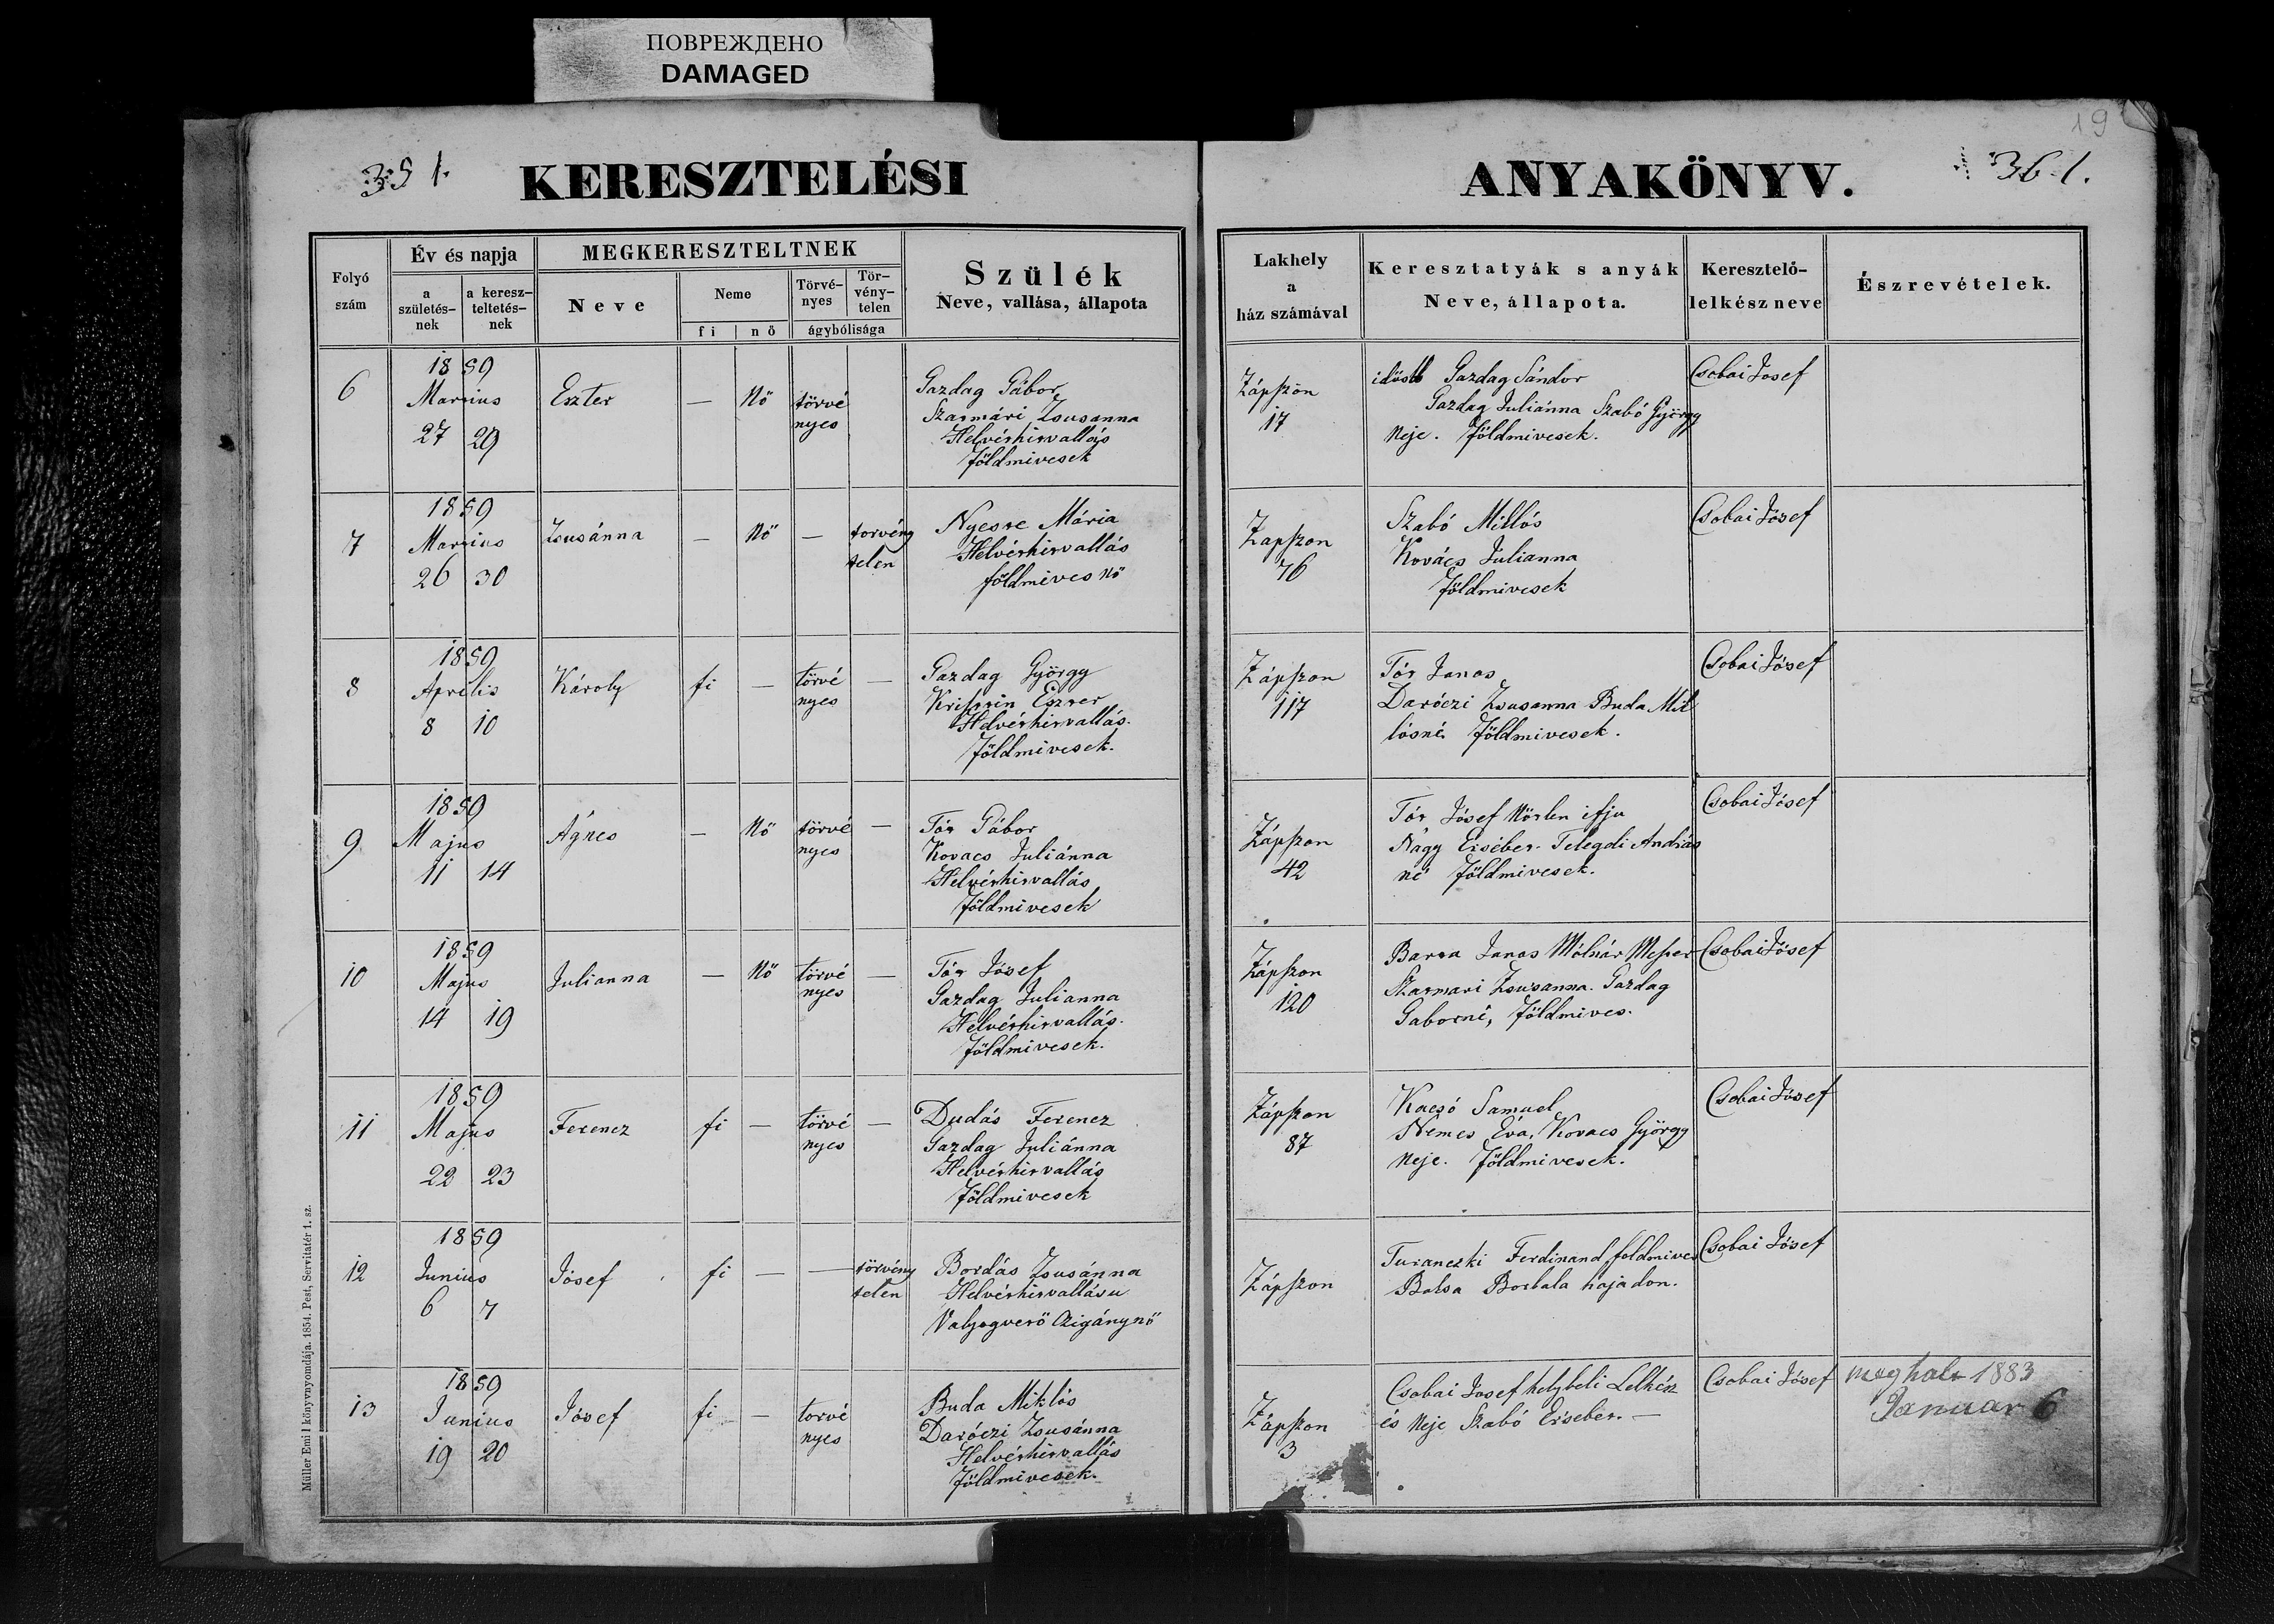 ПОВРЕЖДЕНО
DAMAGED
19
351.
KERESZTELÉSI
ANYAKÖNYV.
36.1.
Folyó szám
Év és napja
a születés-nek
a keresz-teltetés-nek
MEGKERESZTELTNEK
Neve
Neme
fi
nő
Törvé-nyes
Tör-vény-telen
ágybólisága
Szülék
Neve, vallása, állapota
Lakhely
a
ház számával
Keresztatyák s anyák
Neve, állapota.
Keresztelő-
lelkész neve
Észrevételek.
6
1859
Martius
27 29
Eszter
—
Nő
törvé
nyes
Gazdag Gábor
Szatmári Zsusanna
Helvéthitvallás
földmivesek
Zápszon
17
idősb Gazdag Sándor
Gazdag Juliánna Szabó György
Neje. földmivesek.
Csobai Josef
7
1859
Martius
26 30
Zsusánna
—
Nő
—
torvény
telen
Nyeste Mária
Helvéthitvallás
földmives nő
Zapszon
76
Szabó Miklós
Kovács Julianna
földmivesek
Csobai Jósef
8
1859
Aprilis
8 10
Károly
fi
—
törvé
nyes
—
Gazdag György
Eszter
Helvéthitvallás.
földmivesek.
Zápszon
117
Tót Janos
Daróczi Zsusanna Buda Mik
lósné földmivesek.
Csobai Jósef
9
1859
Majus
11 14
Ágnes
—
Nő
törvé
nyes
—
Tót Gábor
Kovacs Juliánna
Helvéthitvallás
földmivesek
Zápszon
42
Tót Jósef Nőtlen ifju
Nagy Ersébet. Telegdi András
né földmivesek.
Csobai Jósef
10
1859
Majus
14 19
Julianna
—
Nő
törvé
nyes
—
Tót Jósef
Gazdag Julianna
Helvéthitvallás.
földmivesek.
Zápszon
120
Barta Janos Mólnár Mester
Szatmari Zsusanna. Gazdag
Gaborné, földmives.
Csobai Jósef
11
1859
Majus
22 23
Ferencz
fi
—
törvé
nyes
—
Dudás Ferencz
Gazdag Juliánna
Helvéthitvallás
földmivesek
Zápszon
87
Kacsó Samuel
Nemes Éva, Kovacs György
Neje. földmivesek.
Csobai Jósef
12
1859
Junius
6 7
Jósef
fi
—
—
törvény
telen
Bordás Zsusánna
Helvéthitvallásu
Valyogvető Czigánynő
Zápszon
Turaneczki Ferdinand földmives
Balsa Borbala hajadon.
Csobai Jósef
13
1859
Junius
19 20
Jósef
fi
—
torvé
nyes
Buda Miklós
Daróczi Zsusánna
Helvéthitvallás
földmivesek.
Zápszon
3
Csobai Josef helybeli Lelkész
és Neje Szabó Ersébet. —
Csobai Jósef
meghalt 1883
Januar 6
Müller Emil könyvnyomdája. 1854. Pest, Servitatér 1. sz.